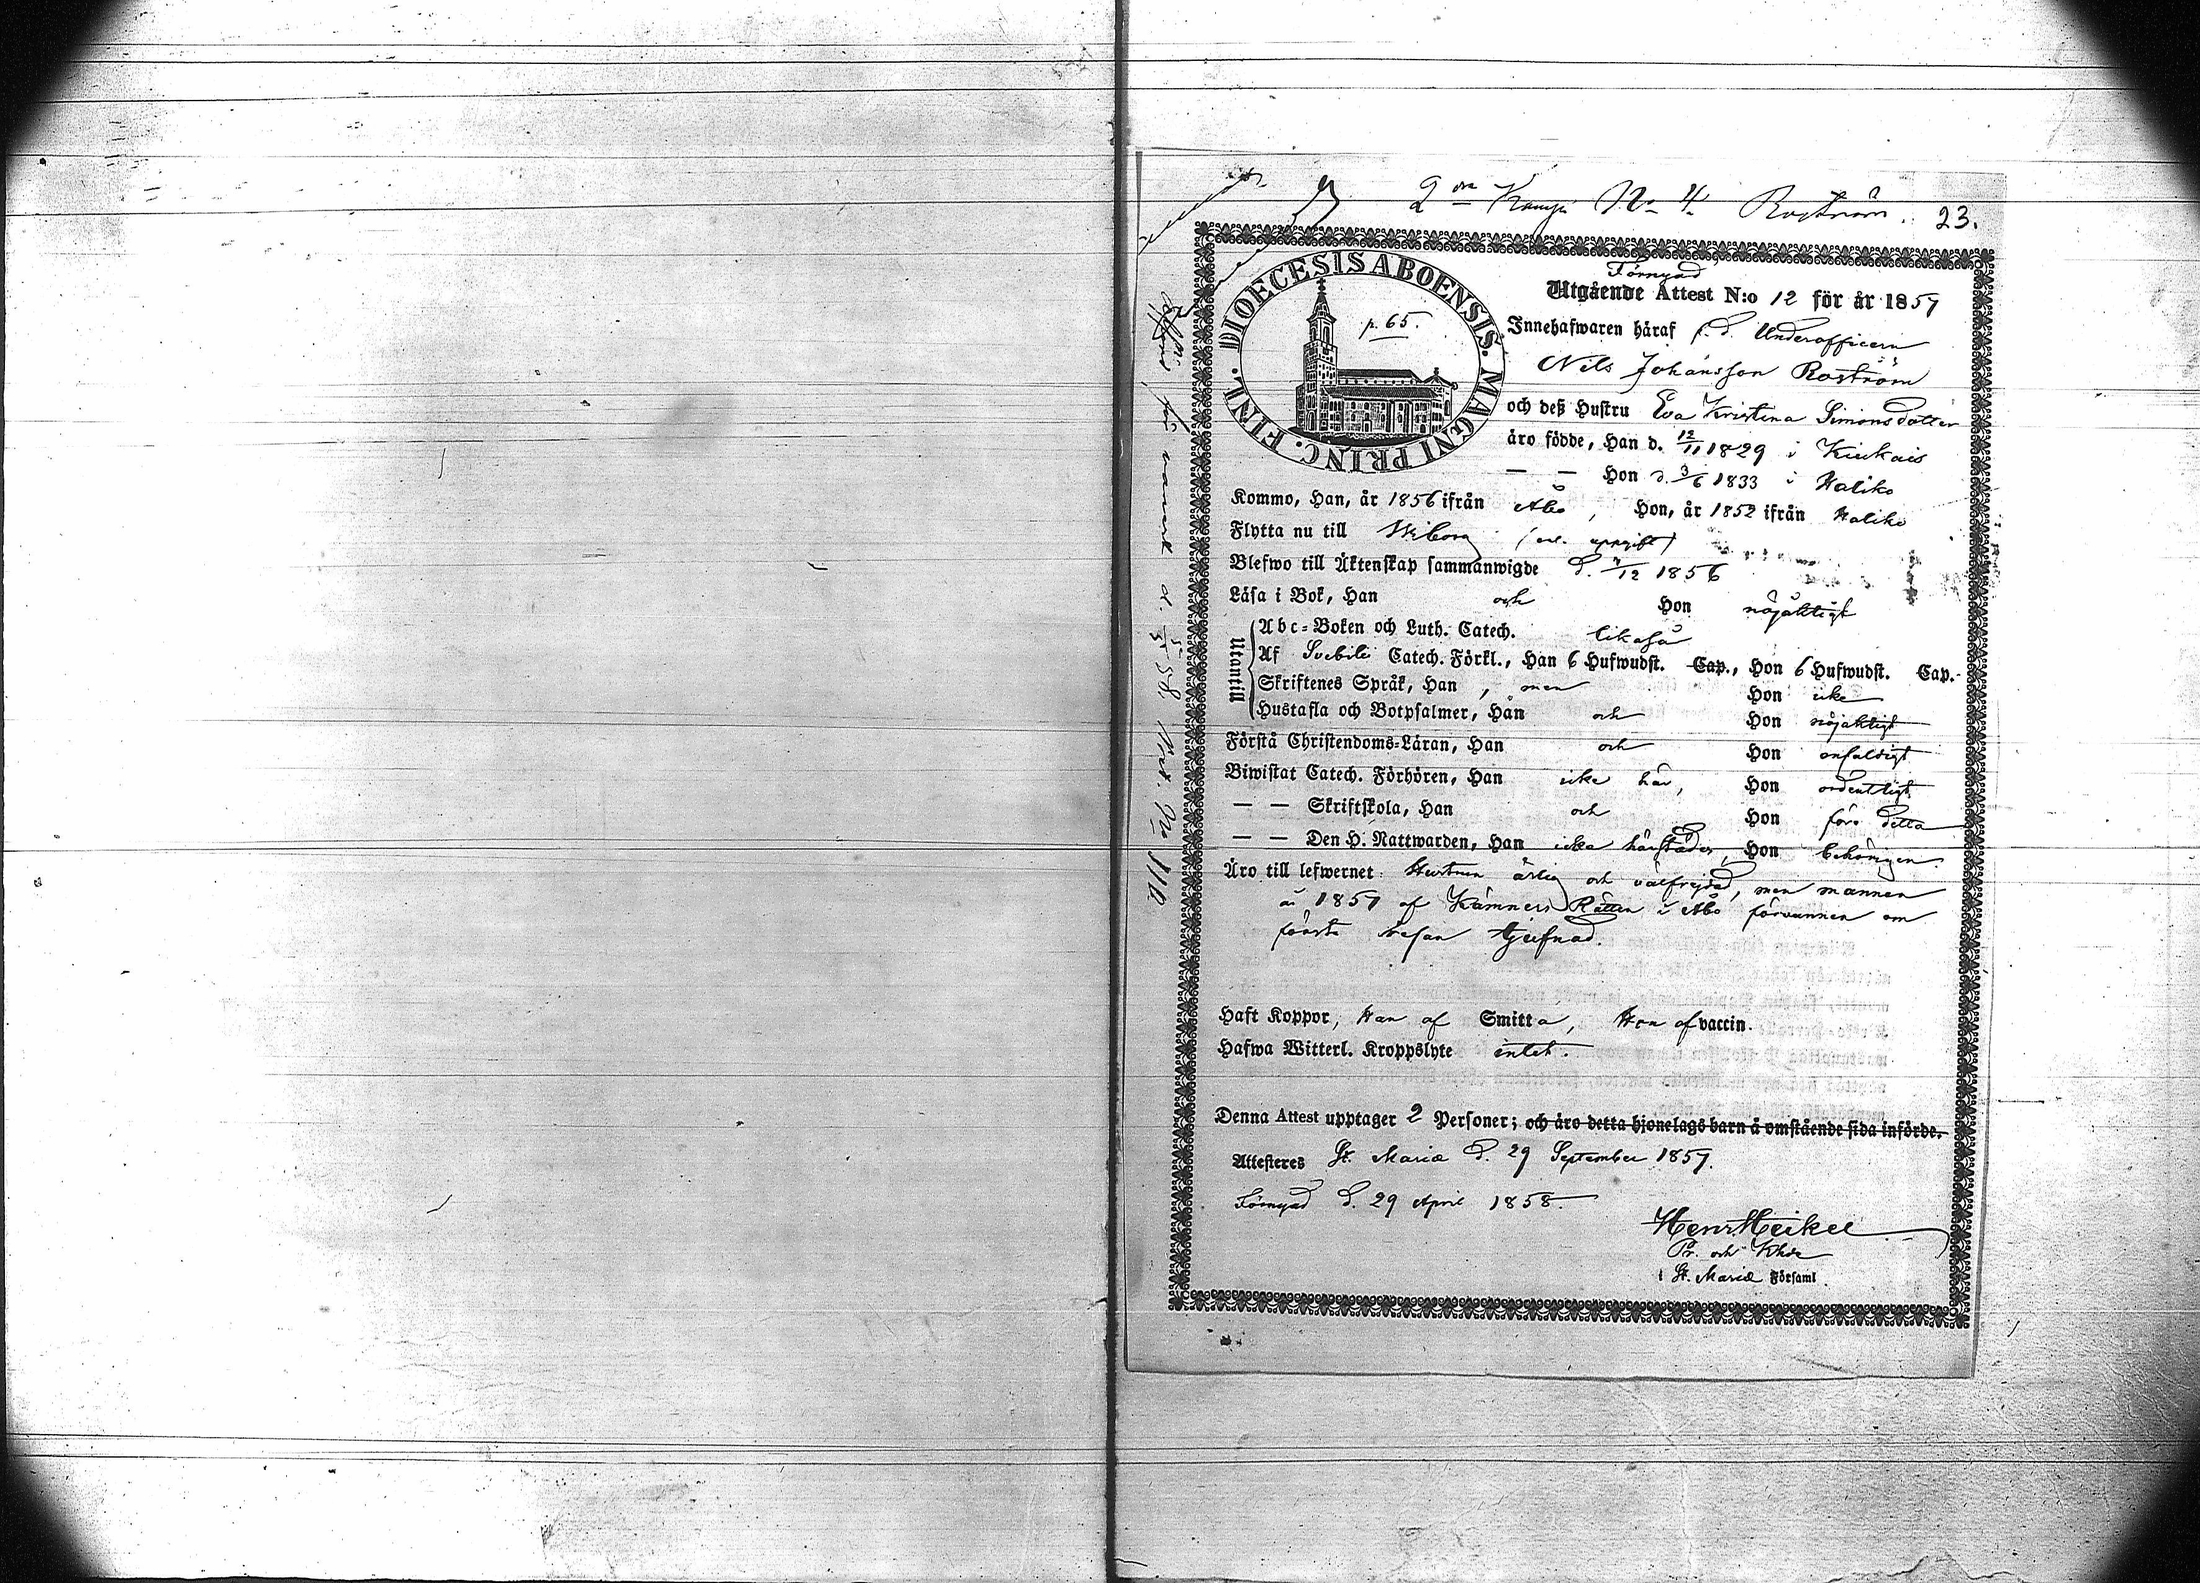 2 dra Komp. No 4. Roström. 23.
DIOECESIS ABOENSIS. MAGNI PRINC. FINL.
p. 65.
Förnyad
Utgående Attest N:o 12 för år 1857
Innehafwaren häraf f. d. Underofficern
Nils Johansson Roström
och deß Hustru Eva Kristina Simonsdotter
äro födde, Han d. 12/11 1829 i Kiukais
— — Hon d. 3/6 1833 i Haliko
Kommo, Han, år 1856 ifrån Åbo, Hon, år 1852 ifrån Haliko
Flytta nu till Wiborg (enl. uppgift)
Blefwo till Äktenskap sammanwigde d. /12 1856
Läsa i Bok, Han och Hon nöjaktigt
Utantill
Abc-Boken och Luth. Catech. likaså
Af Svebilii Catech. Förkl., Han 6 Hufwudst. Cap., Hon 6 Hufwudst. Cap.
Skriftenes Språk, Han , men Hon icke
Hustafla och Botpsalmer, Han och Hon nöjaktigt
Förstå Christendoms-Läran, Han och Hon enfaldigt
Biwistat Catech. Förhören, Han icke här, Hon ordentligt
— — Skriftskola, Han och Hon före detta
— — Den H. Nattwarden, Han icke härstädes, Hon behörigen.
Äro till lefwernet Hustrun ärlig och välfrejdad, men mannen
år 1857 af Kämners Rätten i Åbo förvunnen om
första resan tjufnad.
Haft Koppor, Han af Smitta, Hon af vaccin.
Hafwa Witterl. Kroppslyte intet.
Denna Attest upptager 2 Personer; och äro detta hjonelags barn å omstående sida införde.
Attesteres St. Mariæ d. 29 September 1857.
Förnyad d. 29 April 1858.
Henr. Heikel
Pr. och Khde
i St. Mariæ Församl.